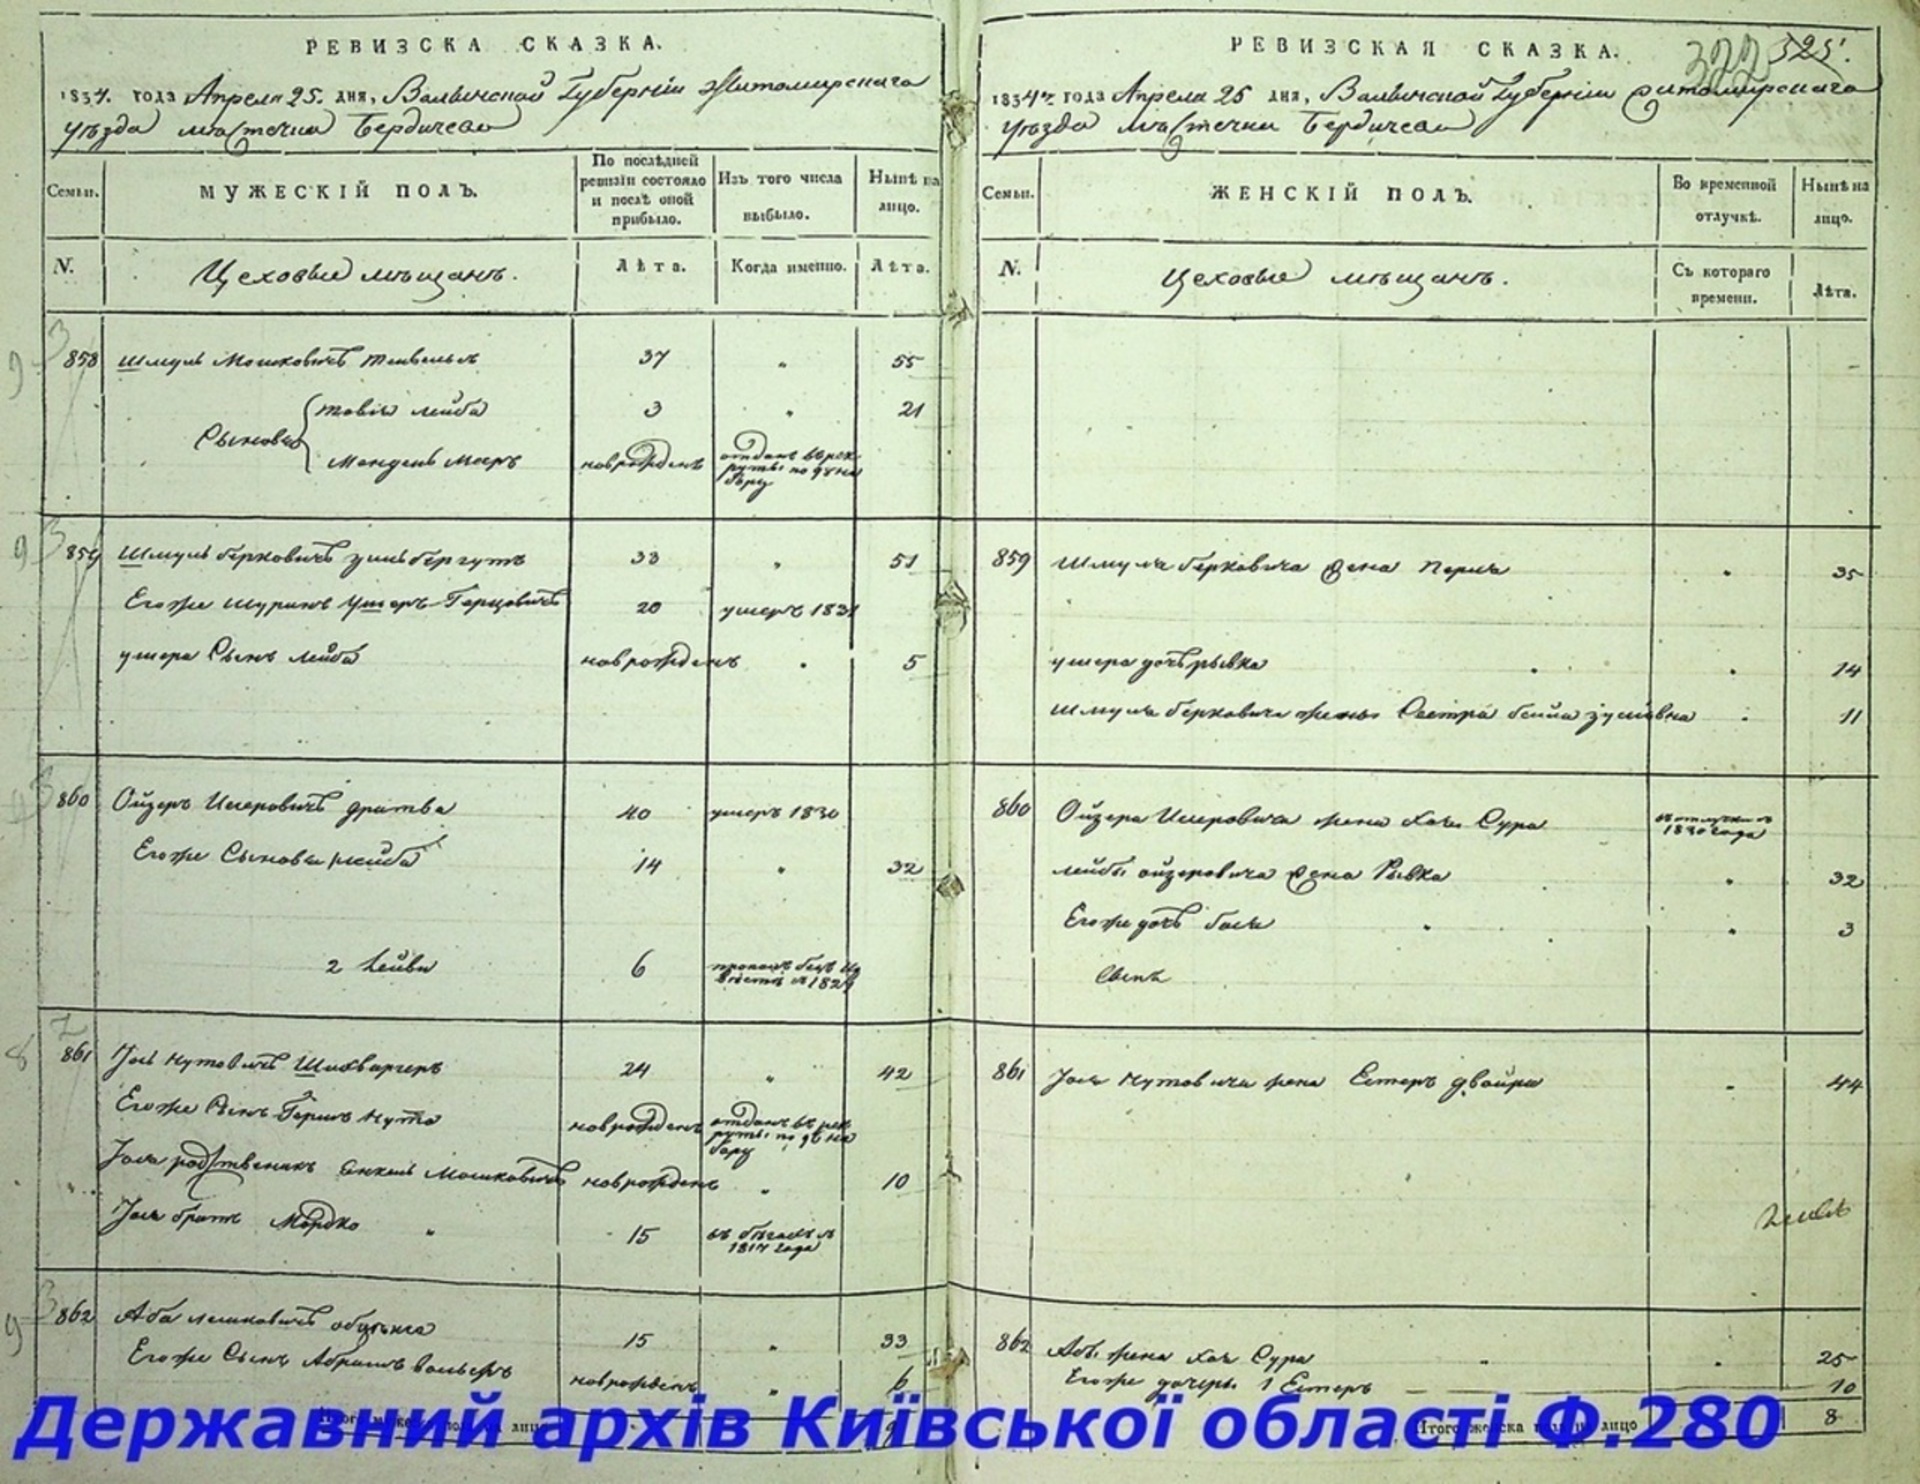 РЕВИЗСКА СКАЗКА.
1834. года Апреля 25. дня, Волынской Губерніи Житомирскаго
уѣзда мѣстечка Бердичева
Семьи.
МУЖЕСКІЙ ПОЛЪ.
По послѣдней
ревизіи состояло
и послѣ оной
прибыло.
Изъ того числа
выбыло.
Нынѣ на
лицо.
N.
Цеховые мѣщанъ.
Лѣта.
Когда именно.
Лѣта.
858 Шмуль Мошковичъ 37 55
Сыновья
Товія Лейба 3 21
Мендель Мееръ новорожденъ отданъ въ рек
руты по 9у на
бору
859 Шмуль Берковичъ 33 51
Егоже шуринъ Ушеръ Герцовичъ 20 умеръ 1831
ушера Сынъ Лейба новорожденъ 5
860 Ойзеръ Дратва 40 умеръ 1830
Егоже Сыновья Лейба 14 32
2 Лейви 6 пропалъ безъ из
вѣсти 1829
861 Іось Нутовичъ Шихваргеръ 24 42
Егоже Сынъ Гершъ Нута новорожденъ отданъ въ рек
руты по 9у на
бору
Іося родственикъ Янкель Мошковичъ новорожденъ 10
Іося братъ Мордко 15 въ бѣгахъ съ
1817 года
862 Аба 15 33
Егоже Сынъ Абрамъ Вольфъ новорожденъ 6
РЕВИЗСКАЯ СКАЗКА.
322 325.
1834 года Апреля 25 дня, Волынской Губерніи Житомирскаго
уѣзда мѣстечка Бердичева
Семьи.
ЖЕНСКІЙ ПОЛЪ.
Во временной
отлучкѣ.
Нынѣ на
лицо.
N.
Цеховые мѣщанъ.
Съ котораго
времени.
Лѣта.
859 Шмуля Берковича жена Перля 35
ушера дочь рывка 14
Шмуля Берковича жены Сестра Бейла 11
860 Ойзера жена Хая Сура въ отлучки съ
1830 года
Лейбы ойзеровича жена Рывка 32
Егоже дочь Бася 3
861 Іося Нутовича жена Естеръ Двойра 44
862 Абы жена Хая Сура 25
Егоже дочерь 1 Естеръ 10
Итого женска пола на лицо 8
Державний архів Київської області Ф.280